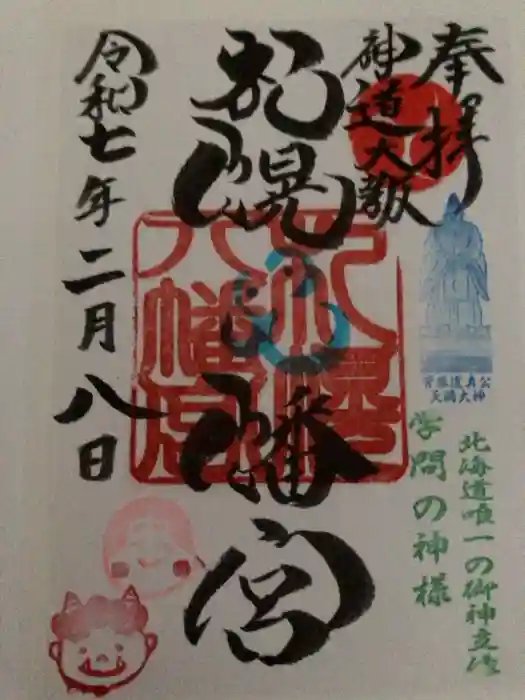 奉拝
菅原道真公
天満大神
北海道唯一の御神立像
学問の神様
神道大教
札幌八幡宮
令和七年二月八日